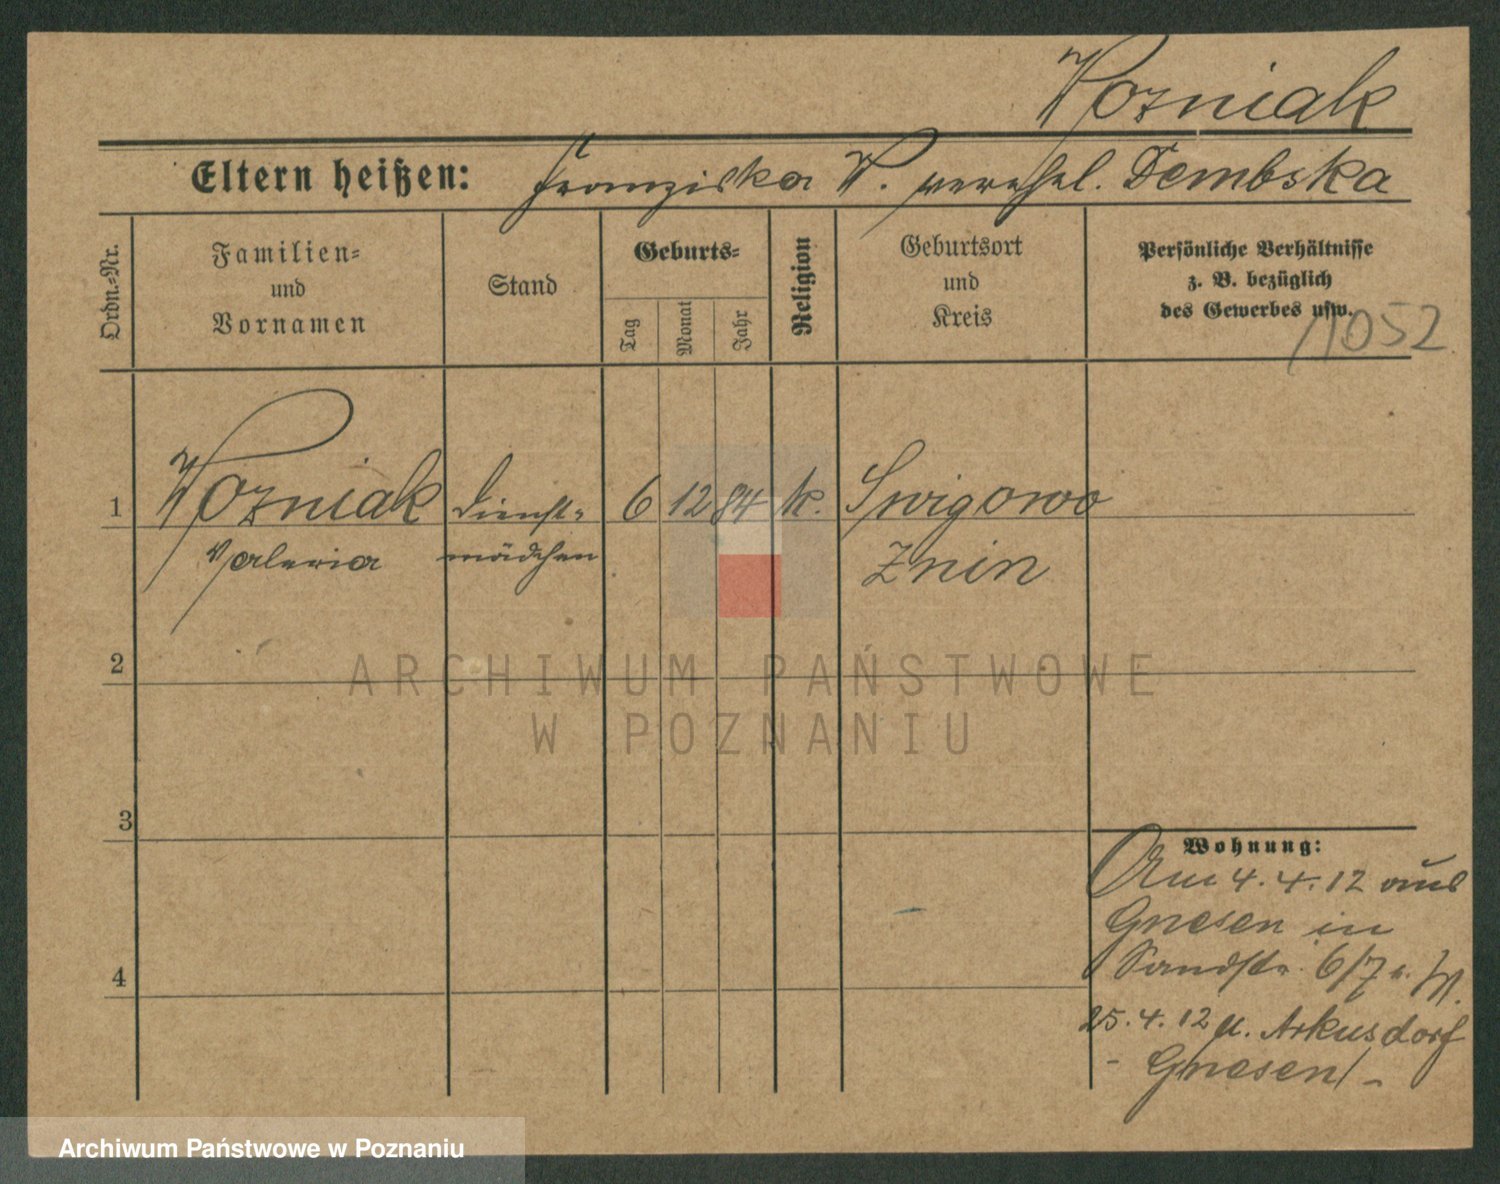 Wozniak
Eltern heißen: Franziska W. verehel. Dembska
Ordn.-Nr.
Familien-
und
Vornamen
Stand
Geburts-
Tag
Monat
Jahr
Religion
Geburtsort
und
Kreis
Persönliche Verhältnisse
z. B. bezüglich
des Gewerbes usw.
1052
1 Wozniak Dienst- 6 12 84 k. Swigowo
Valeria mädchen Znin
2
ARCHIWUM PAŃSTWOWE
W POZNANIU
3
Wohnung:
Am 4.4.12 aus
Gnesen in
Sandstr. 6/7
25.4.12 n. Arkusdorf
- Gnesen -
4
Archiwum Państwowe w Poznaniu